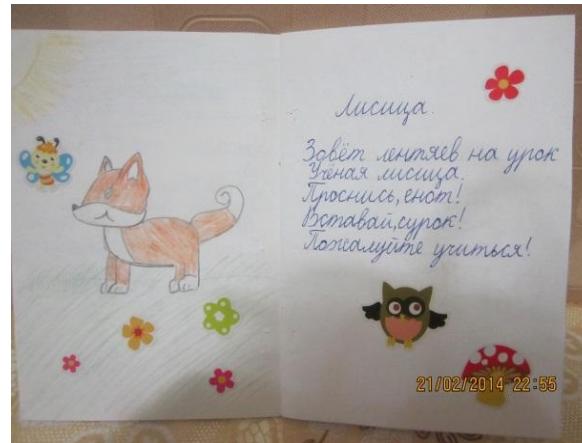 Лисица.
Зовёт лентяев на урок
Учёная лисица.
Проснись, енот!
Вставай, сурок!
Пожалуйте учиться!
21/02/2014 22:55